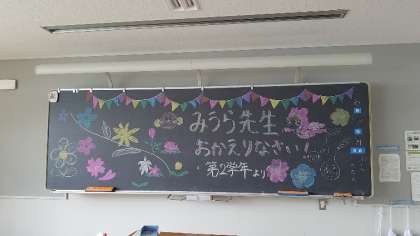 みうら先生
おかえりなさい!
第2学年より